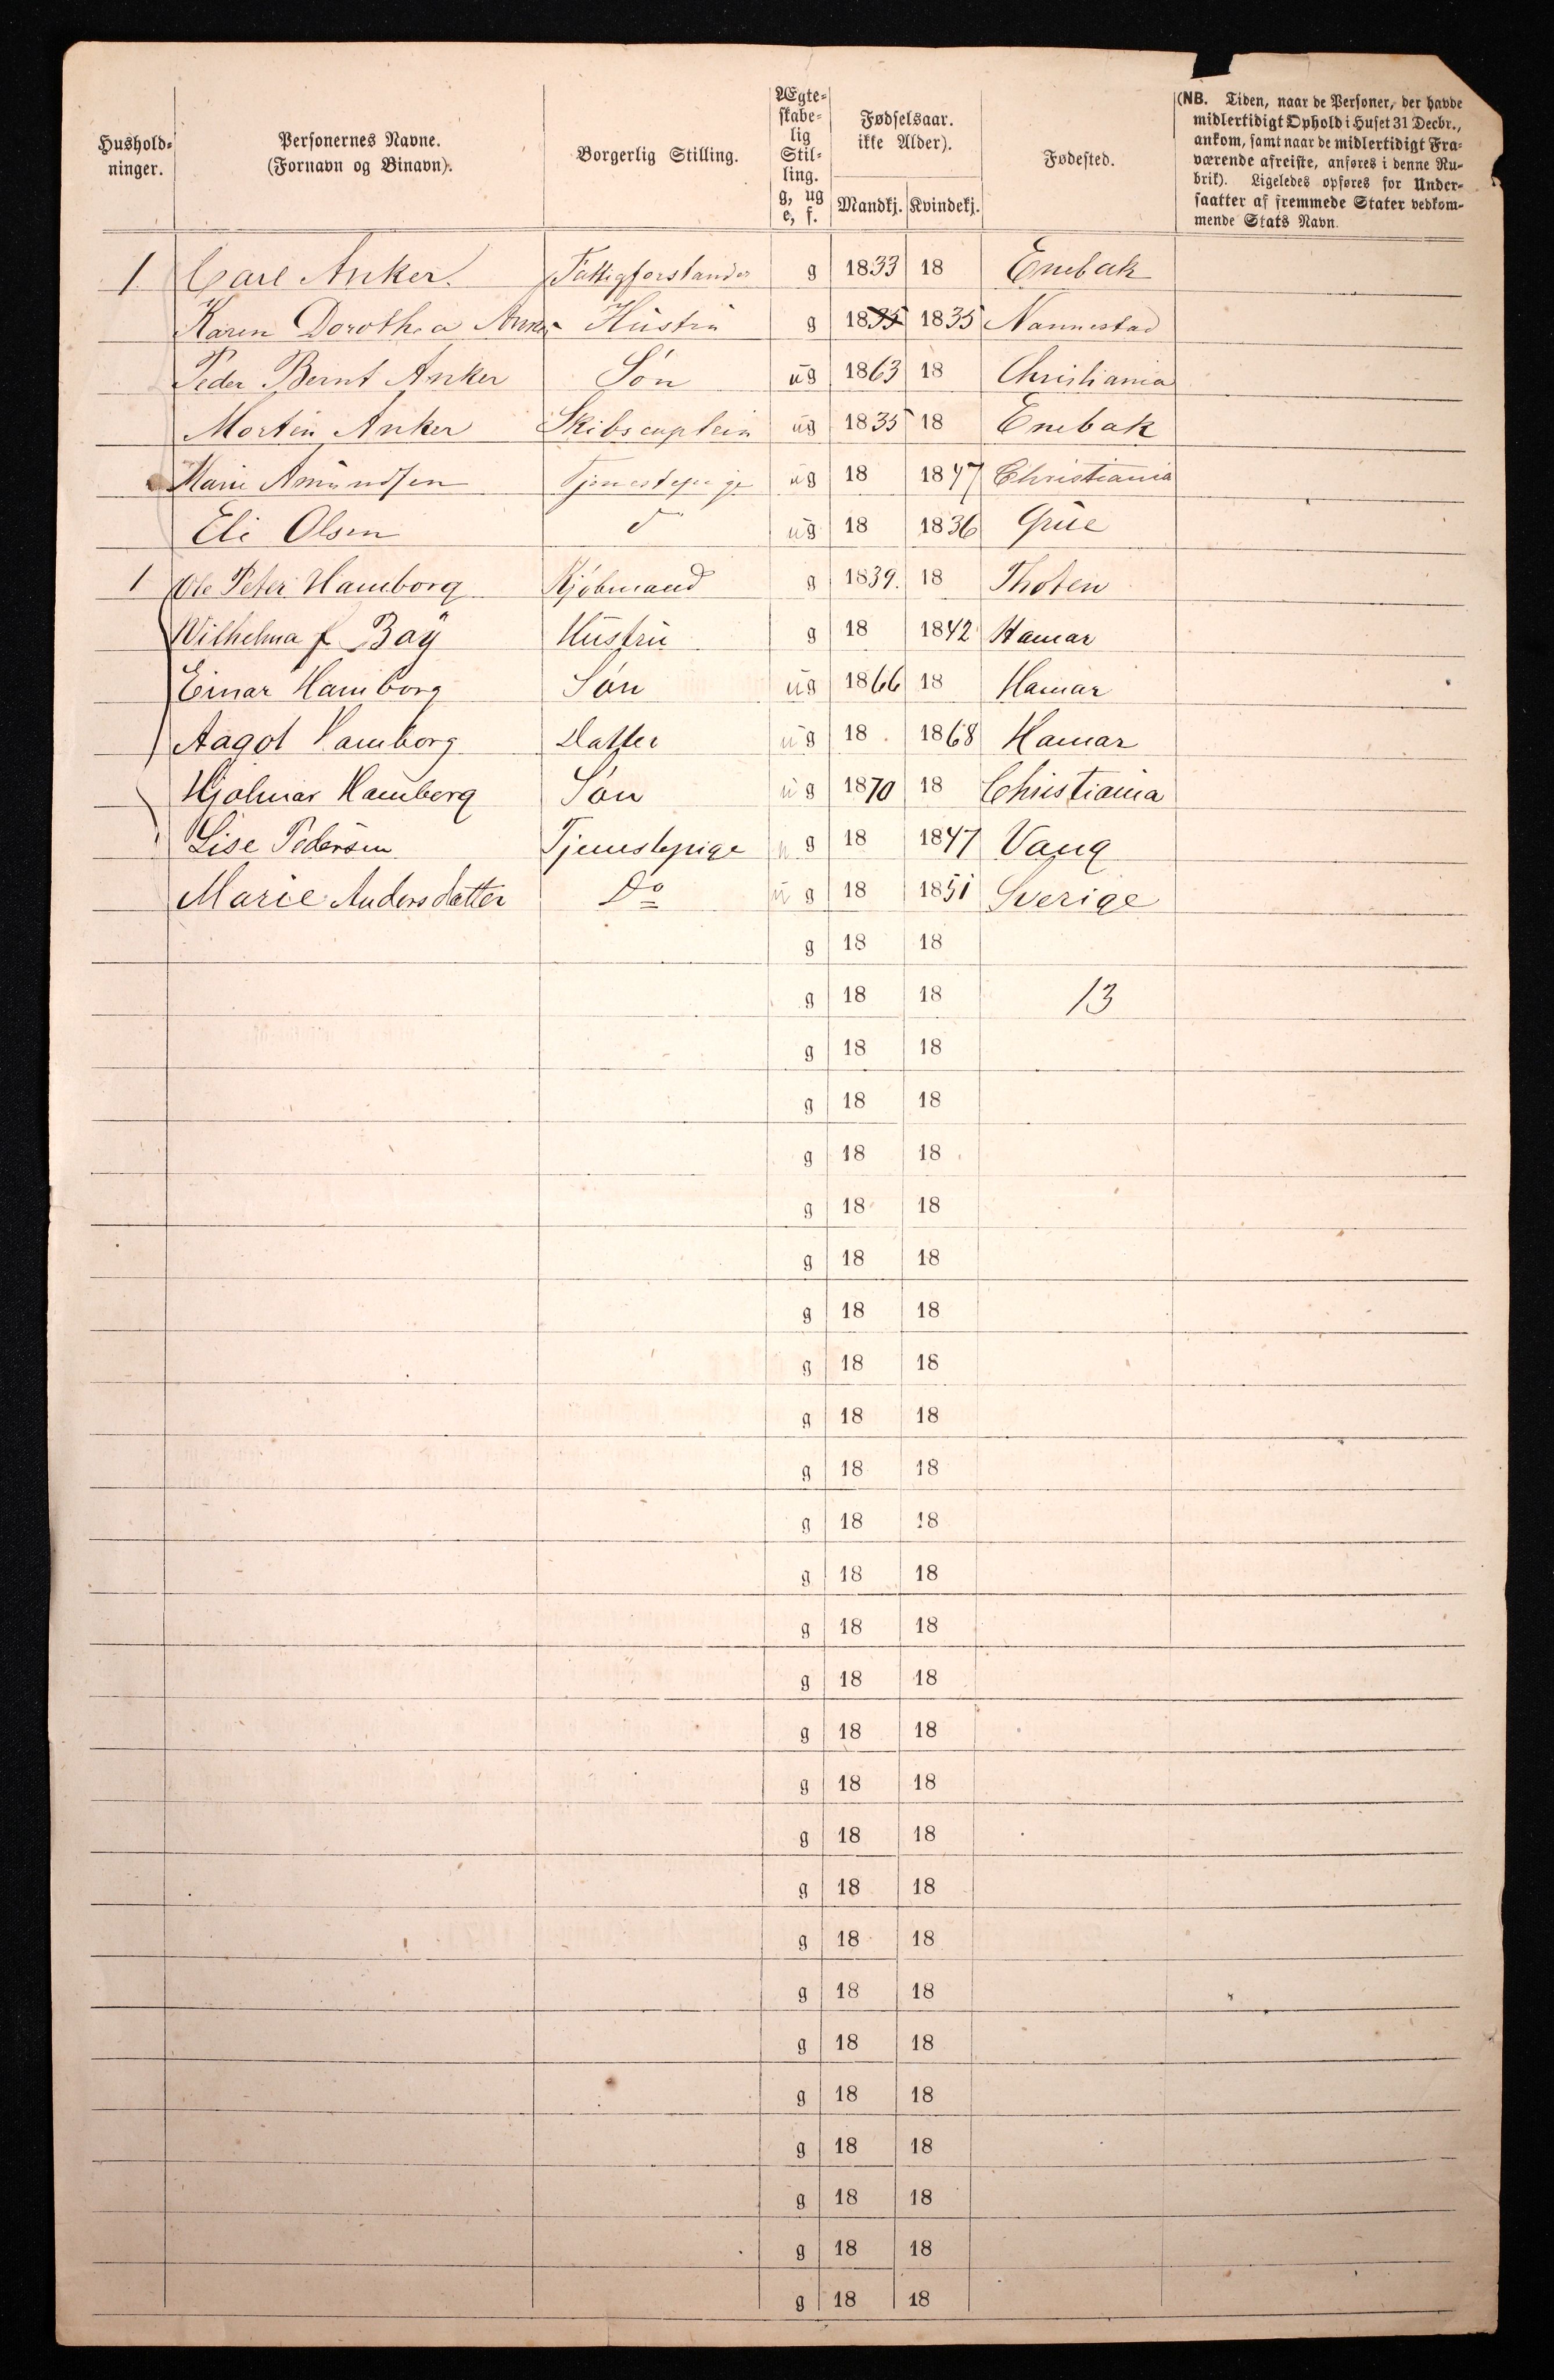 Hushold-
ninger.
Personernes Navne.
(Fornavn og Binavn).
Borgerlig Stilling.
Ægte-
skabe-
lig
Stil-
ling.
g, ug
e, f.
Fødselsaar.
ikke Alder).
Mandkj. Kvindekj.
Fødested.
(NB. Tiden, naar de Personer, der havde
midlertidigt Ophold i Huset 31 Decbr.,
ankom, samt naar de midlertidigt Fra-
værende afreiste, anføres i denne Ru-
brik). Ligeledes opføres for Under-
saatter af fremmede Stater vedkom-
mende Stats Navn.
1 Carl Anker. Fattigforstander g 1833 18 Enebak
Karen Dorothea Anker Hustru g 1835 1835 Nannestad
Peder Bernt Anker Søn ug 1863 18 Christiania
Morten Anker Skibscaptein ug 1835 18 Enebak
Marie Amundsen Tjenestepige ug 18 1847 Christiania
Eli Olsen do ug 18 1836 Grue
1 Ole Peter Hamborg Kjøbmand g 1839. 18 Thoten
Wilhelma f Bay Hustru g 18 1842 Hamar
Einar Hamborg Søn ug 1866 18 Hamar
Aagot Hamborg Datter ug 18 1868 Hamar
Hjalmar Hamborg Søn ug 1870 18 Christiania
Lise Pedersen Tjenestepige ug 18 1847 Vang
Marie Andersdatter Do ug 18 1851 Sverige
g 18 18
g 18 18 13
g 18 18
g 18 18
g 18 18
g 18 18
g 18 18
g 18 18
g 18 18
g 18 18
g 18 18
g 18 18
g 18 18
g 18 18
g 18 18
g 18 18
g 18 18
g 18 18
g 18 18
g 18 18
g 18 18
g 18 18
g 18 18
g 18 18
g 18 18
g 18 18
g 18 18